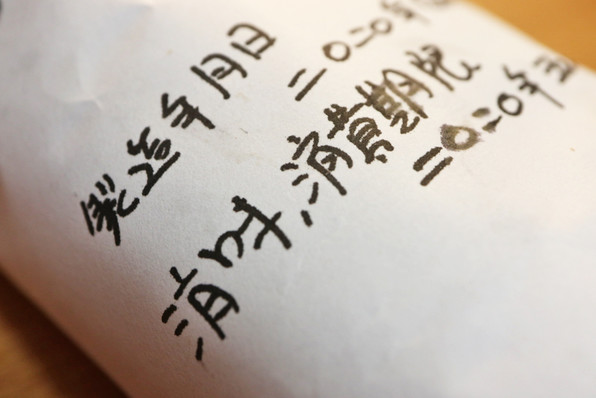 製造年月日
二〇二〇年
消味、消費期限
二〇二〇年三